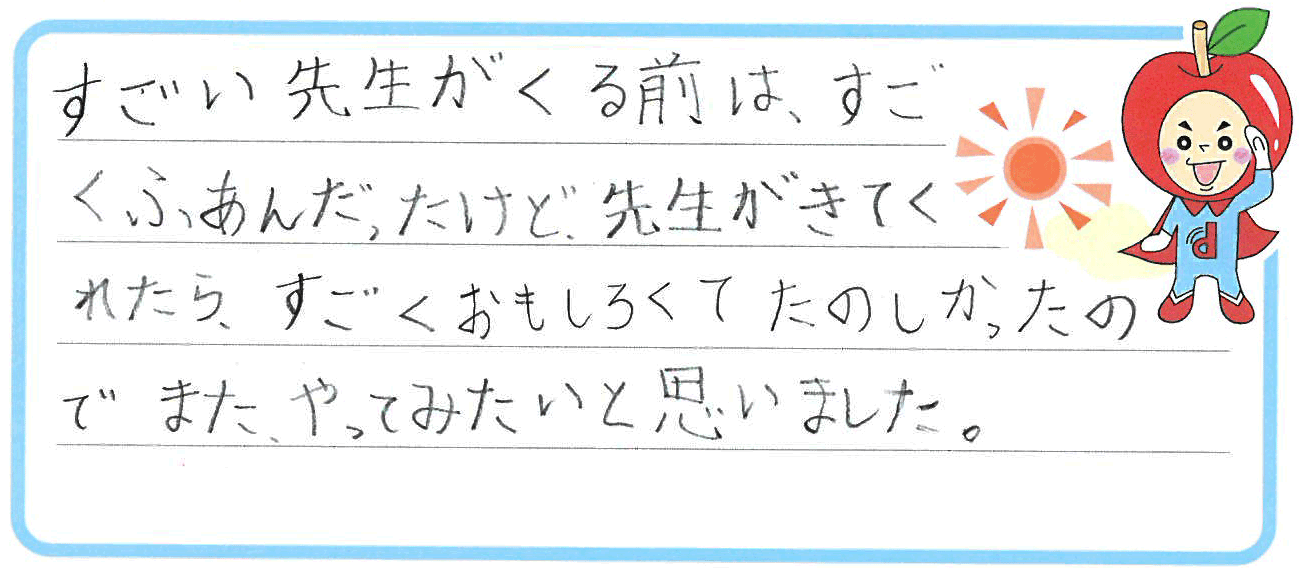 すごい先生がくる前は、すご
くふあんだったけど、先生がきてく
れたら、すごくおもしろくてたのしかったの
でまた、やってみたいと思いました。